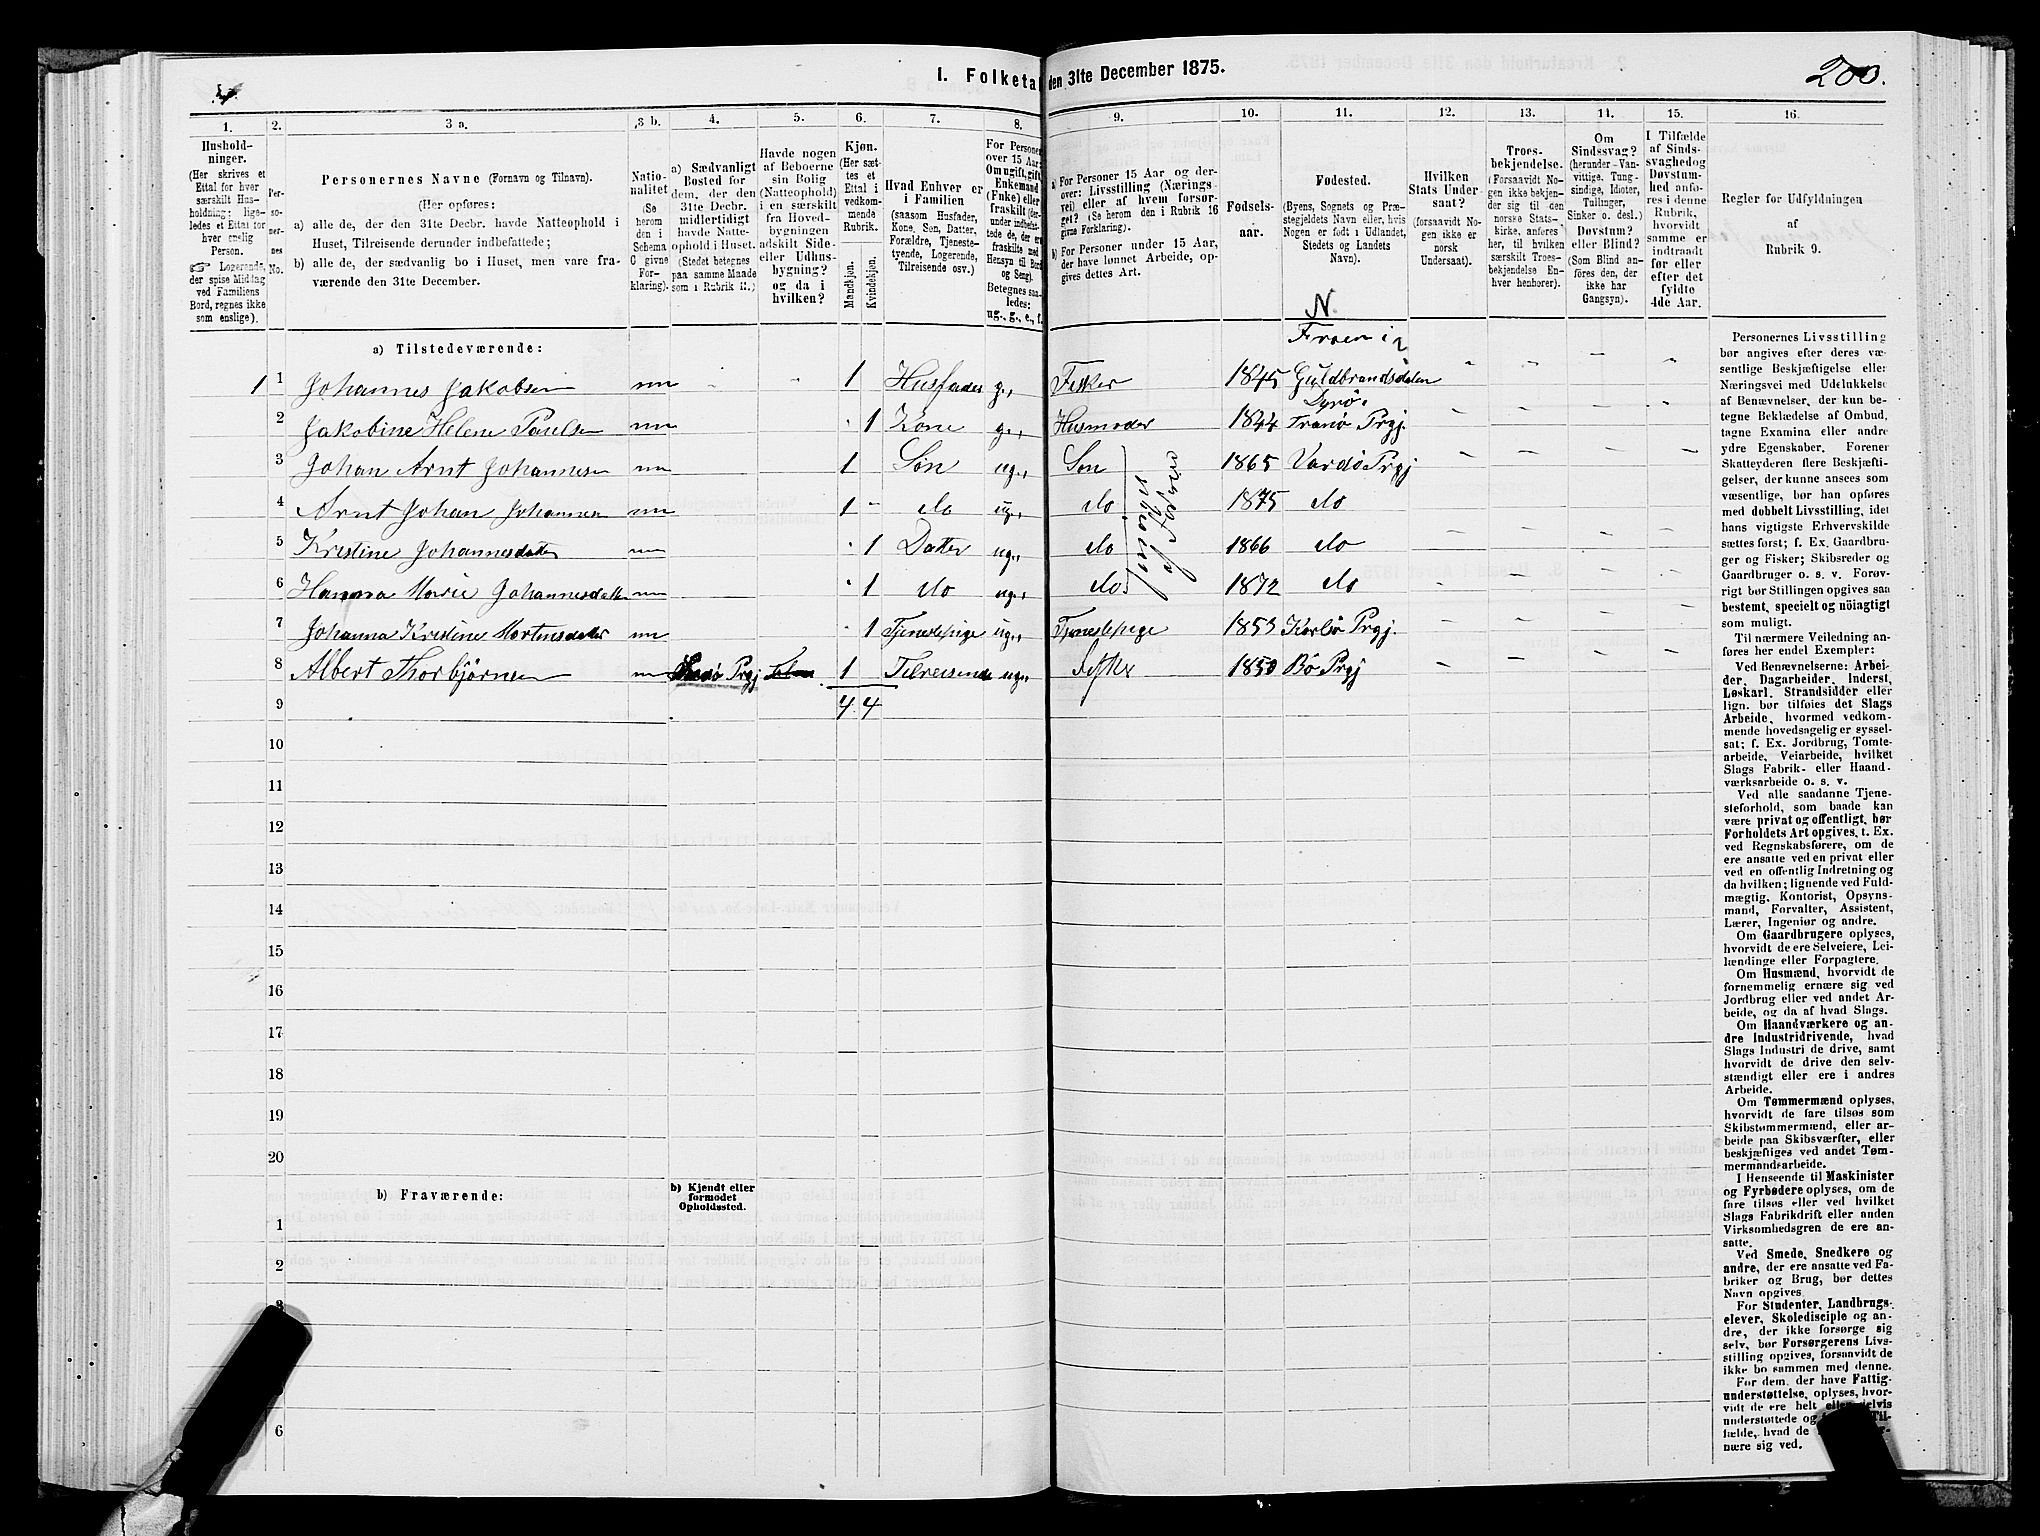 1. Folketal den 31te December 1875.
200.
1. 2. 3 a. 3 b. 4. 5. 6. 7. 8. 9. 10. 11. 12. 13. 14. 15. 16.
Husholdninger.
(Her skrives et
Ettal for hver
særskilt Husholdning;
ligeledes et Ettal for
hver enslig
Person.
☞ Logerende,
der spise Middag
ved Familiens
Bord, regnes ikke
som enslige).
Personernes No.
Personernes Navne (Fornavn og Tilnavn).
(Her opføres:
a) alle de, der den 31te Decbr. havde Natteophold i
Huset, Tilreisende derunder indbefattede;
b) alle de, der sædvanlig bo i Huset, men vare fraværende
den 31te December.
Nationalitet
(Se
herom
den i
Schema
C givne
Forklaring).
a) Sædvanligt
Bosted for
dem, der den
31te Decbr.
midlertidigt
havde Natteophold
i Huset.
(Stedet betegnes
paa samme Maade
som i Rubrik 11.)
Havde nogen
af Beboerne
sin Bolig
(Natteophold)
i en særskilt
fra Hovedbygningen
adskilt Side-
eller Udhusbygning?
og da i
hvilken?
Kjøn.
(Her sættes
et
Ettal i
vedkommende
Rubrik.
Mandkjøn.
Kvindekjøn.
Hvad Enhver er
i Familien
(saasom Husfader,
Kone, Søn, Datter,
Forældre, Tjenestetyende,
Logerende,
Tilreisende osv.)
For Personer
over 15 Aar:
Om ugift, gift,
Enkemand
(Enke) eller
fraskilt
Betegnes saaledes:
ug., g., e., f.
a) For Personer 15 Aar og derover:
Livsstilling (Næringsvei)
eller af hvem forsørget?
(Se herom den i Rubrik 16
givne Forklaring.)
b) For Personer under 15 Aar,
der have lønnet Arbeide, opgives
dettes Art.
Fødselsaar.
Fødested.
(Byens, Sognets og Præstegjeldets
Navn eller, hvis
Nogen er født i Udlandet,
Stedets og Landets
Navn).
Hvilken
Stats Undersaat?
(forsaavidt Nogen
ikke er
norsk
Undersaat).
Troesbekjendelse.
(Forsaavidt Nogen
ikke bekjender
sig til den
norske Statskirke,
anføres
her, til hvilken
særskilt Troesbekjendelse
Enhver
henhører).
Om
Sindssvag?
(herunder Vanvittige,
Tungsindige,
Idioter,
Tullinger,
Sinker o. desl.)
Døvstum?
eller Blind?
(Som Blind anføres
den, der
ikke har
Gangsyn).
I Tilfælde
af Sindssvaghed
og
Døvstumhed
anføres
i denne
Rubrik,
hvorvidt
samme er
indtraadt
før eller
efter det
fyldte
4de Aar.
Regler for Udfyldningen
af
Rubrik 9.
a) Tilstedeværende:
N.
Froen i
1 1 Johannes Jakobsen nn 1 Husfader g., Fisker 1845 Guldbrandsdalen
Dyrø.
2 Jakobine Helene Paulsen nn 1 Kone g., Husmoder 1844 Tranø Prgj.
3 Johan Arnt Johannesen nn 1 Søn ug., Søn 1865 Vardø Prgj
4 Arnt Johan Johannesen nn 1 do ug., do 1875 do
5 Kristine Johannesdatter nn 1 Datter ug., do 1866 do
6 Hanna Marie Johannesdatter nn 1 do ug., do 1872 do
7 Johanna Kristine Mortensdatter nn 1 Tjenestepige ug., Tjenestepige 1853 Karlsø Prgj.
8 Albert Thorbjørnsen nn Prgj 1 Tilreisende ug., Fisker 1850 Bø Prgj
9 4 4
10
11
12
13
14
15
16
17
18
19
20
b) Fraværende:
b) Kjendt eller
formodet
Opholdssted.
1
2
3
6
Personernes Livsstilling
bør angives efter deres væsentlige
Beskjæftigelse eller
Næringsvei med Udelukkelse
af Benævnelser, der kun betegne
Beklædelse af Ombud,
tagne Examina eller andre
ydre Egenskaber. Forener
Skatteyderen flere Beskjæftigelser,
der kunne ansees som
væsentlige, bør han opføres
med dobbelt Livsstilling, idet
hans vigtigste Erhvervskilde
sættes først; f. Ex. Gaardbruger
og Fisker; Skibsreder og
Gaardbruger o. s. v. Forøvrigt
bør Stillingen opgives saa
bestemt, specielt og nöiagtigt
som muligt.
Til nærmere Veiledning anføres
her endel Exempler:
Ved Benævnelserne: Arbeider,
Dagarbeider, Inderst,
Løskarl, Strandsidder eller
lign. bør tilføies det Slags
Arbeide, hvormed vedkommende
hovedsagelig er sysselsat;
f. Ex. Jordbrug, Tomtearbeide,
Veiarbeide, hvilket
Slags Fabrik- eller Haandværksarbeide
o. s. v.
Ved alle saadanne Tjenesteforhold,
som baade kan
være privat og offentligt, bør
Forholdets Art opgives, t. Ex.
ved Regnskabsførere, om de
ere ansatte ved en privat eller
ved en offentlig Indretning og
da hvilken; lignende ved Fuldmægtig,
Kontorist, Opsynsmand,
Forvalter, Assistent,
Lærer, Ingeniør og andre.
Om Gaardbrugere oplyses,
hvorvidt de ere Selveiere, Leilændinge
eller Forpagtere.
Om Husmænd, hvorvidt de
fornemmelig ernære sig ved
Jordbrug eller ved andet Arbeide,
og da af hvad Slags.
Om Haandværkere og andre
Industridrivende, hvad
Slags Industri de drive, samt
hvorvidt de drive den selvstændigt
eller ere i andres
Arbeide.
Om Tømmermænd oplyses,
hvorvidt de fare tilsøs som
Skibstømmermænd, eller arbeide
paa Skibsværfter, eller
beskjæftiges ved andet Tømmermandsarbeide.
I Henseende til Maskinister
og Fyrbødere oplyses, om de
fare tilsøs eller ved hvilket
Slags Fabrikdrift eller anden
Virksomhedsgren de ere ansatte.
Ved Smede, Snedkere og
andre, der ere ansatte ved Fabriker
og Brug, bør dettes
Navn opgives.
For Studenter, Landbrugselever,
Skoledisciple og andre,
der ikke forsørge sig
selv, bør Forsørgerens Livsstilling
opgives, forsaavidt de
ikke bo sammen med denne.
For dem, der have Fattigunderstøttelse,
oplyses, hvorvidt
de ere helt eller delvis
understøttede og
Tilfælde, hvad de
nære sig ved.